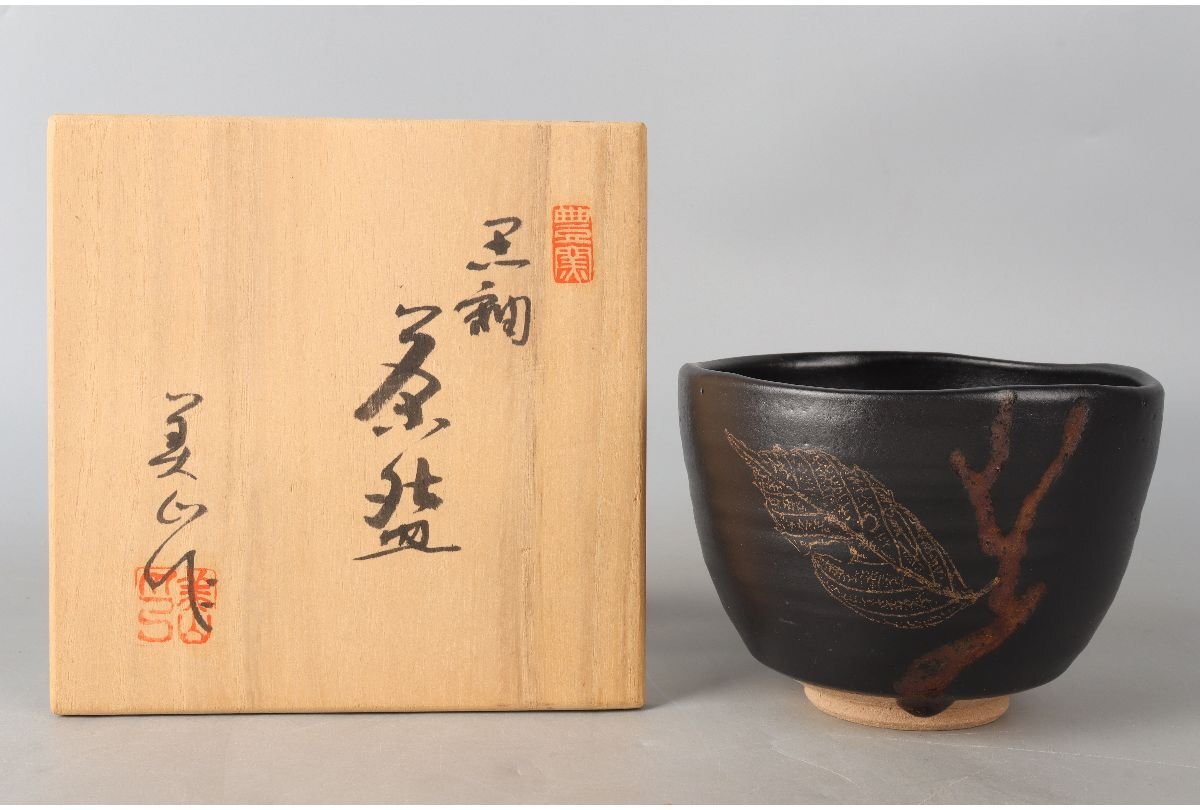 豊窯
黒釉
茶盌
美山作
美山